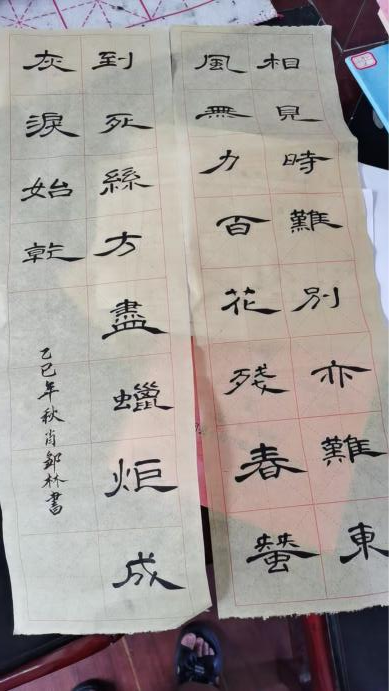 相見時難別亦難東
風無力百花殘春蠶
到死絲方盡蠟炬成
灰淚始乾
乙巳年秋肖鄒林書